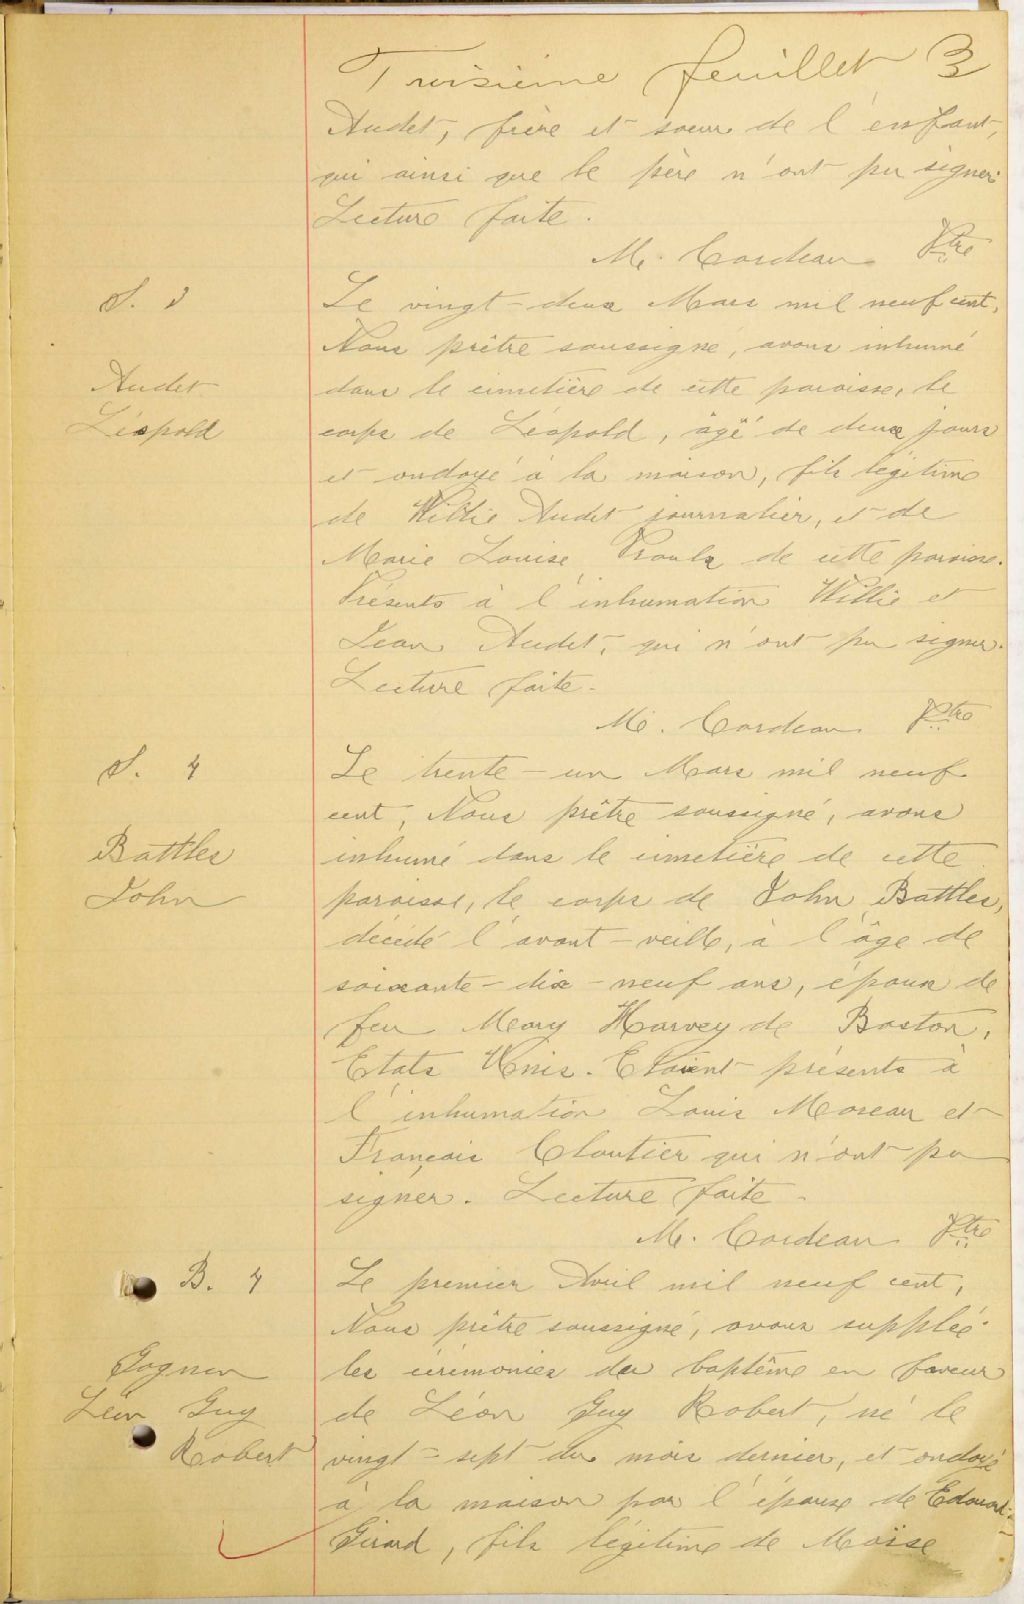 Troisième feuillet 3
Audet, frère et soeur de l'enfant,
qui ainsi que le père n'ont pu signer.
Lecture faite.
M. Cordeau Ptre
S. 3
Le vingt-deux Mars mil neuf cent,
Nous prêtre soussigné, avons inhumé
Audet
dans le cimetière de cette paroisse, le
Léopold
corps de Léopold, âgé de deux jours
et ondoyé à la maison, fils légitime
de Willie Audet journalier, et de
Marie Louise Proulx de cette paroisse.
Présents à l'inhumation Willie et
Jean Audet, qui n'ont pu signer.
Lecture faite.
M. Cordeau Ptre
S. 4
Le trente-un Mars mil neuf
cent, Nous prêtre soussigné, avons
Battles
inhumé dans le cimetière de cette
John
paroisse, le corps de John Battles,
décédé l'avant-veille, à l'âge de
soixante-dix-neuf ans, époux de
feu Mary Harvey de Boston,
Etats Unis. Etaient présents à
l'inhumation Louis Moreau et
François Cloutier qui n'ont pu
signer. Lecture faite.
M. Cordeau Ptre
B. 4
Le premier Avril mil neuf cent,
Nous prêtre soussigné, avons supplée
Gagnon
les cérémonies du baptême en faveur
Léon Guy
de Léon Guy Robert, né le
Robert
vingt-sept du mois dernier, et ondoyé
à la maison par l'épouse de Edouard
Girard, fils légitime de Moïse